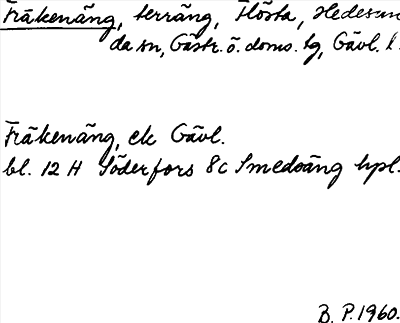 Fräkenäng, terräng, Hösta, Hedesun
da sn, Gästr. ö. doms. lg, Gävl. l.
Fräkenäng, ek Gävl.
bl. 12 H Söderfors 8c Smedsäng hpl.
B. P. 1960.